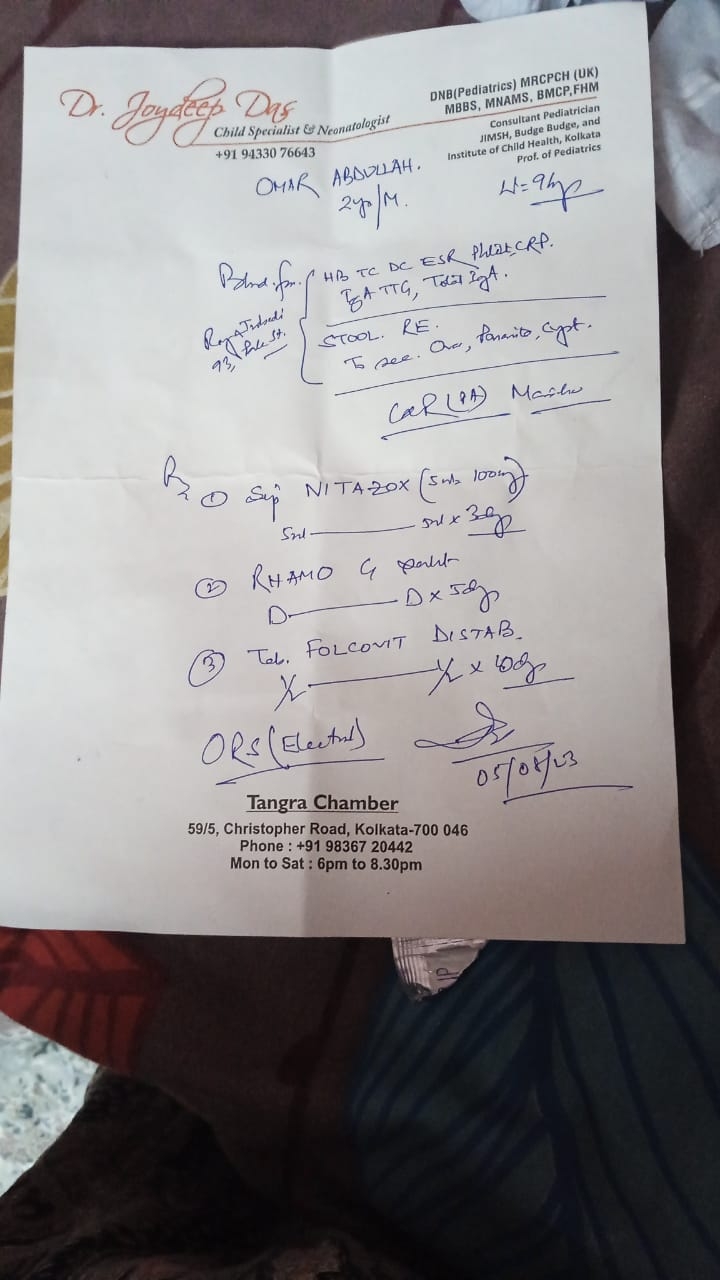 Dr. Joydeep Das
Child Specialist & Neonatologist
+91 94330 76643
DNB(Pediatrics) MRCPCH (UK)
MBBS, MNAMS, BMCP,FHM
Consultant Pediatrician
JIMSH, Budge Budge, and
Institute of Child Health, Kolkata
Prof. of Pediatrics
OMAR ABDULLAH.
2yr/M.
HB TC DC ESR CRP.
IgA TTG, Total IgA.
STOOL. RE.
To see. Ova, Parasite, Cyst.
CXR (PA)
① Syp NITAZOX (5ml 100mg)
5ml 5ml x 3
② RHAMO G
D D x 5
③ Tab. FOLCOVIT DISTAB.
½ ½ x 10
ORS (Electral)
05/08/23
Tangra Chamber
59/5, Christopher Road, Kolkata-700 046
Phone : +91 98367 20442
Mon to Sat : 6pm to 8.30pm